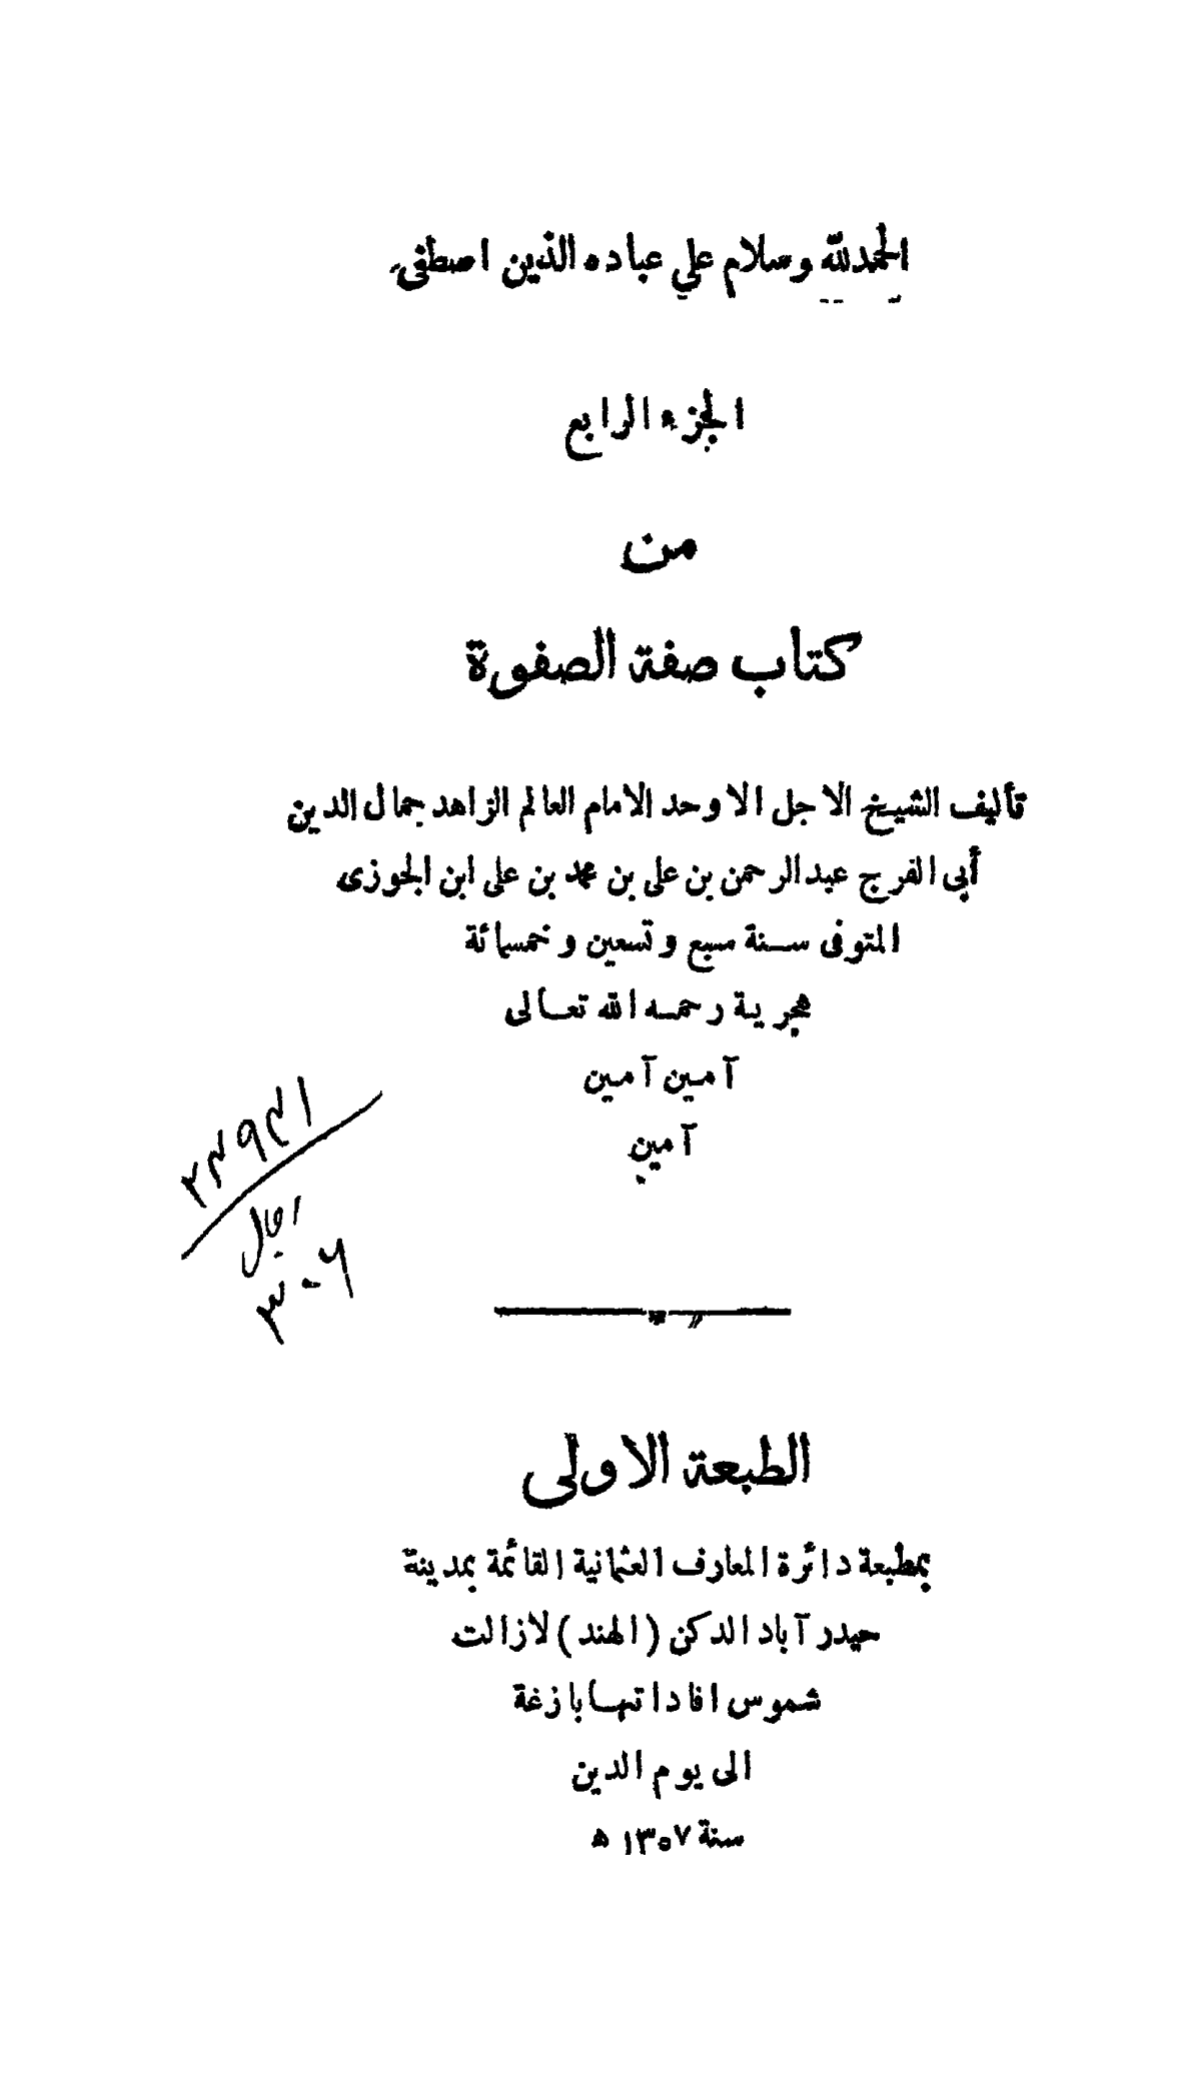 الحمدلله وسلام علي عباده الذين اصطفى
الجزء الرابع
من
كتاب صفة الصفوة
تأليف الشيخ الاجل الاوحد الامام العالم الزاهد جمال الدين
أبى الفرج عبدالرحمن بن على بن محمد بن على ابن الجوزى
المتوفى سنة سبع وتسعين وخمسمائة
هجرية رحمه الله تعالى
آمين آمين
آمين
الطبعة الاولى
بمطبعة دائرة المعارف العثمانية القائمة بمدينة
حيدر آباد الدكن (الهند) لازالت
شموس افاداتها بازغة
الى يوم الدين
سنة ١٣٥٧ ه